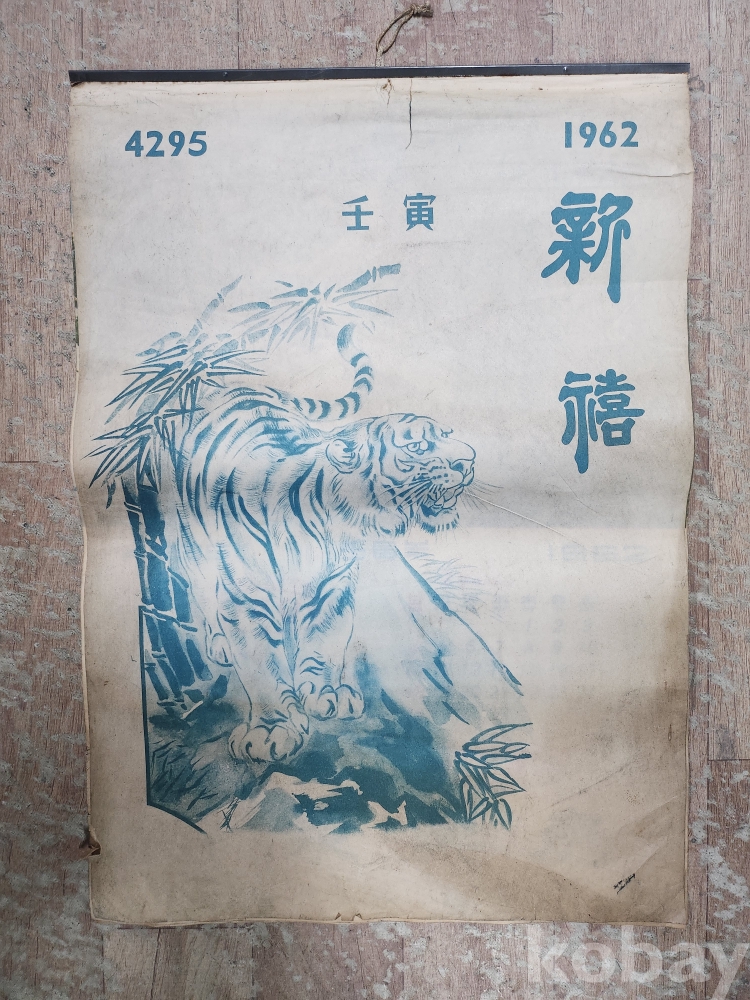 4295
1962
壬寅
新禧
kobay